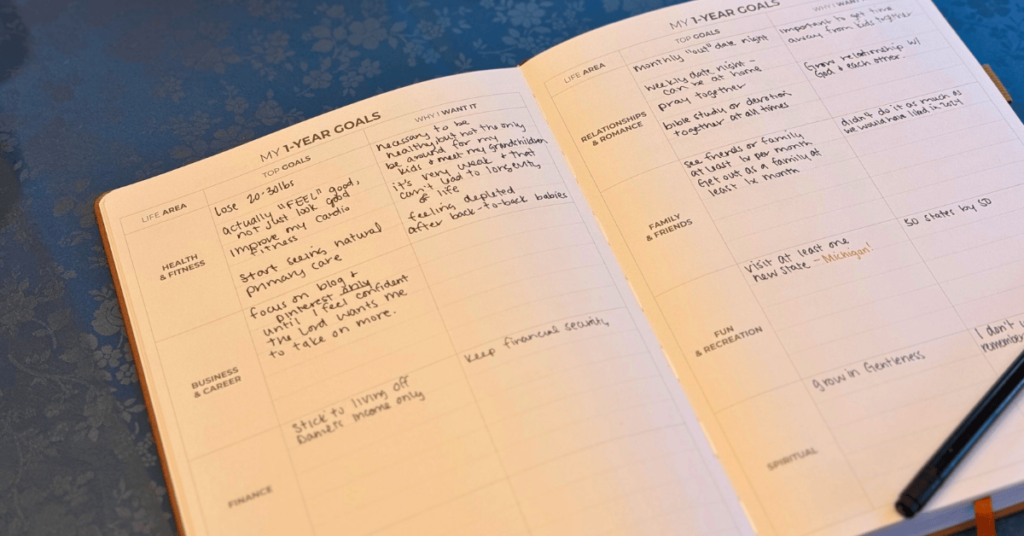 MY 1-YEAR GOALS
LIFE AREA
TOP GOALS
WHY I WANT IT
HEALTH
& FITNESS
Lose 20-30lbs
actually "FEEL" good,
not just look good
Improve my cardio
fitness
Start seeing natural
primary care
necessary to be
healthy but not the only
be around for my
kids & meet my grandchildren
it's very weak & that
can't lead to longevity
of life
feeling depleted
after back-to-back babies
BUSINESS
& CAREER
Focus on blog +
Pinterest only
until I feel confident
the Lord wants me
to take on more.
FINANCE
Stick to living off
Daniel's income only
Keep financial security
MY 1-YEAR GOALS
LIFE AREA
TOP GOALS
WHY I WANT IT
RELATIONSHIPS
& ROMANCE
monthly "out" date night
weekly date night –
can be at home
pray together
bible study or devotion
together at all times
Important to get time
away from kids together
Grow relationship w/
God & each other
FAMILY
& FRIENDS
see friends or family
at least 1x per month
Get out as a family at
least 1x month
didn't do it as much as
we would have liked in 2024
FUN
& RECREATION
visit at least one
new state – Michigan!
50 states by 50
SPIRITUAL
grow in Gentleness
I don't
remember